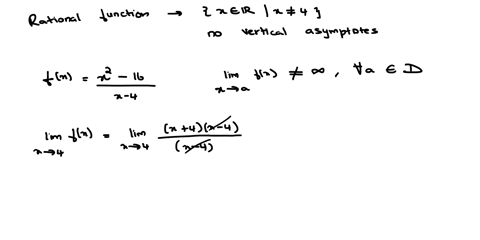 Rational function → { x ∈ ℝ | x ≠ 4 }
no vertical asymptotes
f(x) = x² - 16 / x-4    lim x→a f(x) ≠ ∞ , ∀a ∈ D
lim x→4 f(x) = lim x→4 (x+4)(x-4) / (x-4)